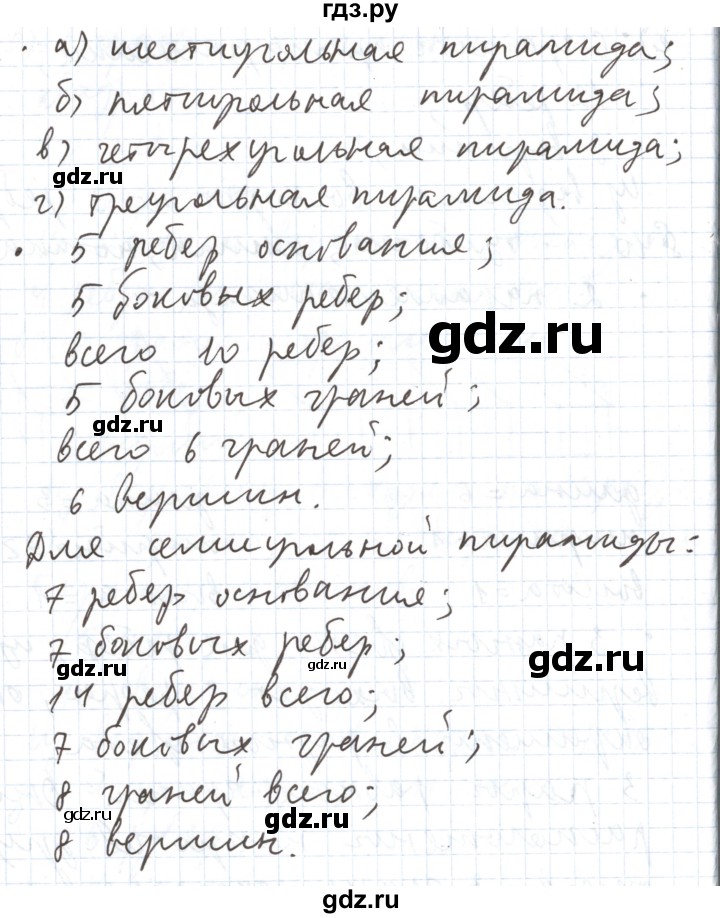 гдз.ру
• а) шестиугольная пирамида;
б) пятиугольная пирамида;
в) четырехугольная пирамида;
gdz.ru
г) треугольная пирамида.
• 5 ребер основания;
5 боковых ребер;
gdz.ru
всего 10 ребер;
5 боковых граней;
gdz.ru
всего 6 граней;
6 вершин.
Для семиугольной пирамиды:
7 ребер основания;
7 боковых ребер;
gdz.ru
gdz.ru
gdz.ru
14 ребер всего;
7 боковых граней;
8 граней всего;
gdz.ru
gdz.ru
8 вершин.
gdz.ru